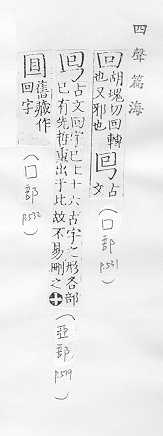 四聲篇海
回 胡塊切回轉也又邪也 古文 (口部 p.531)
古文回字已上十六古字之形各部已有先哲重出于此故不易刪之 (亞部)
舊藏作回字 (口部 p.532)